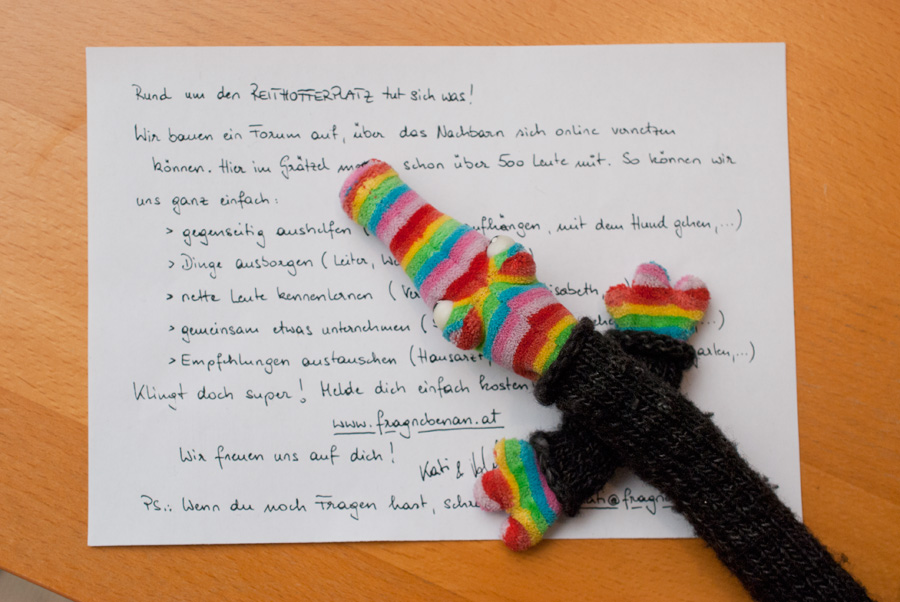 Rund um den REITHOFFERPLATZ tut sich was!
Wir bauen ein Forum auf, über das Nachbarn sich online vernetzen
können. Hier im Grätzel schon über 500 Leute mit. So können wir
uns ganz einfach:
> gegenseitig aushelfen ( ufhängen, mit dem Hund gehen,...)
> Dinge ausborgen (Leiter,
> nette Leute kennenlernen ( isabeth
> gemeinsam etwas unternehmen ( ...)
> Empfehlungen austauschen (Hausarzt garten,...)
Klingt doch super! Melde dich einfach kosten
www.fragnebenan.at
Wir freuen uns auf dich!
Kati &
Ps.: Wenn du noch Fragen hast, schre ati@fragn